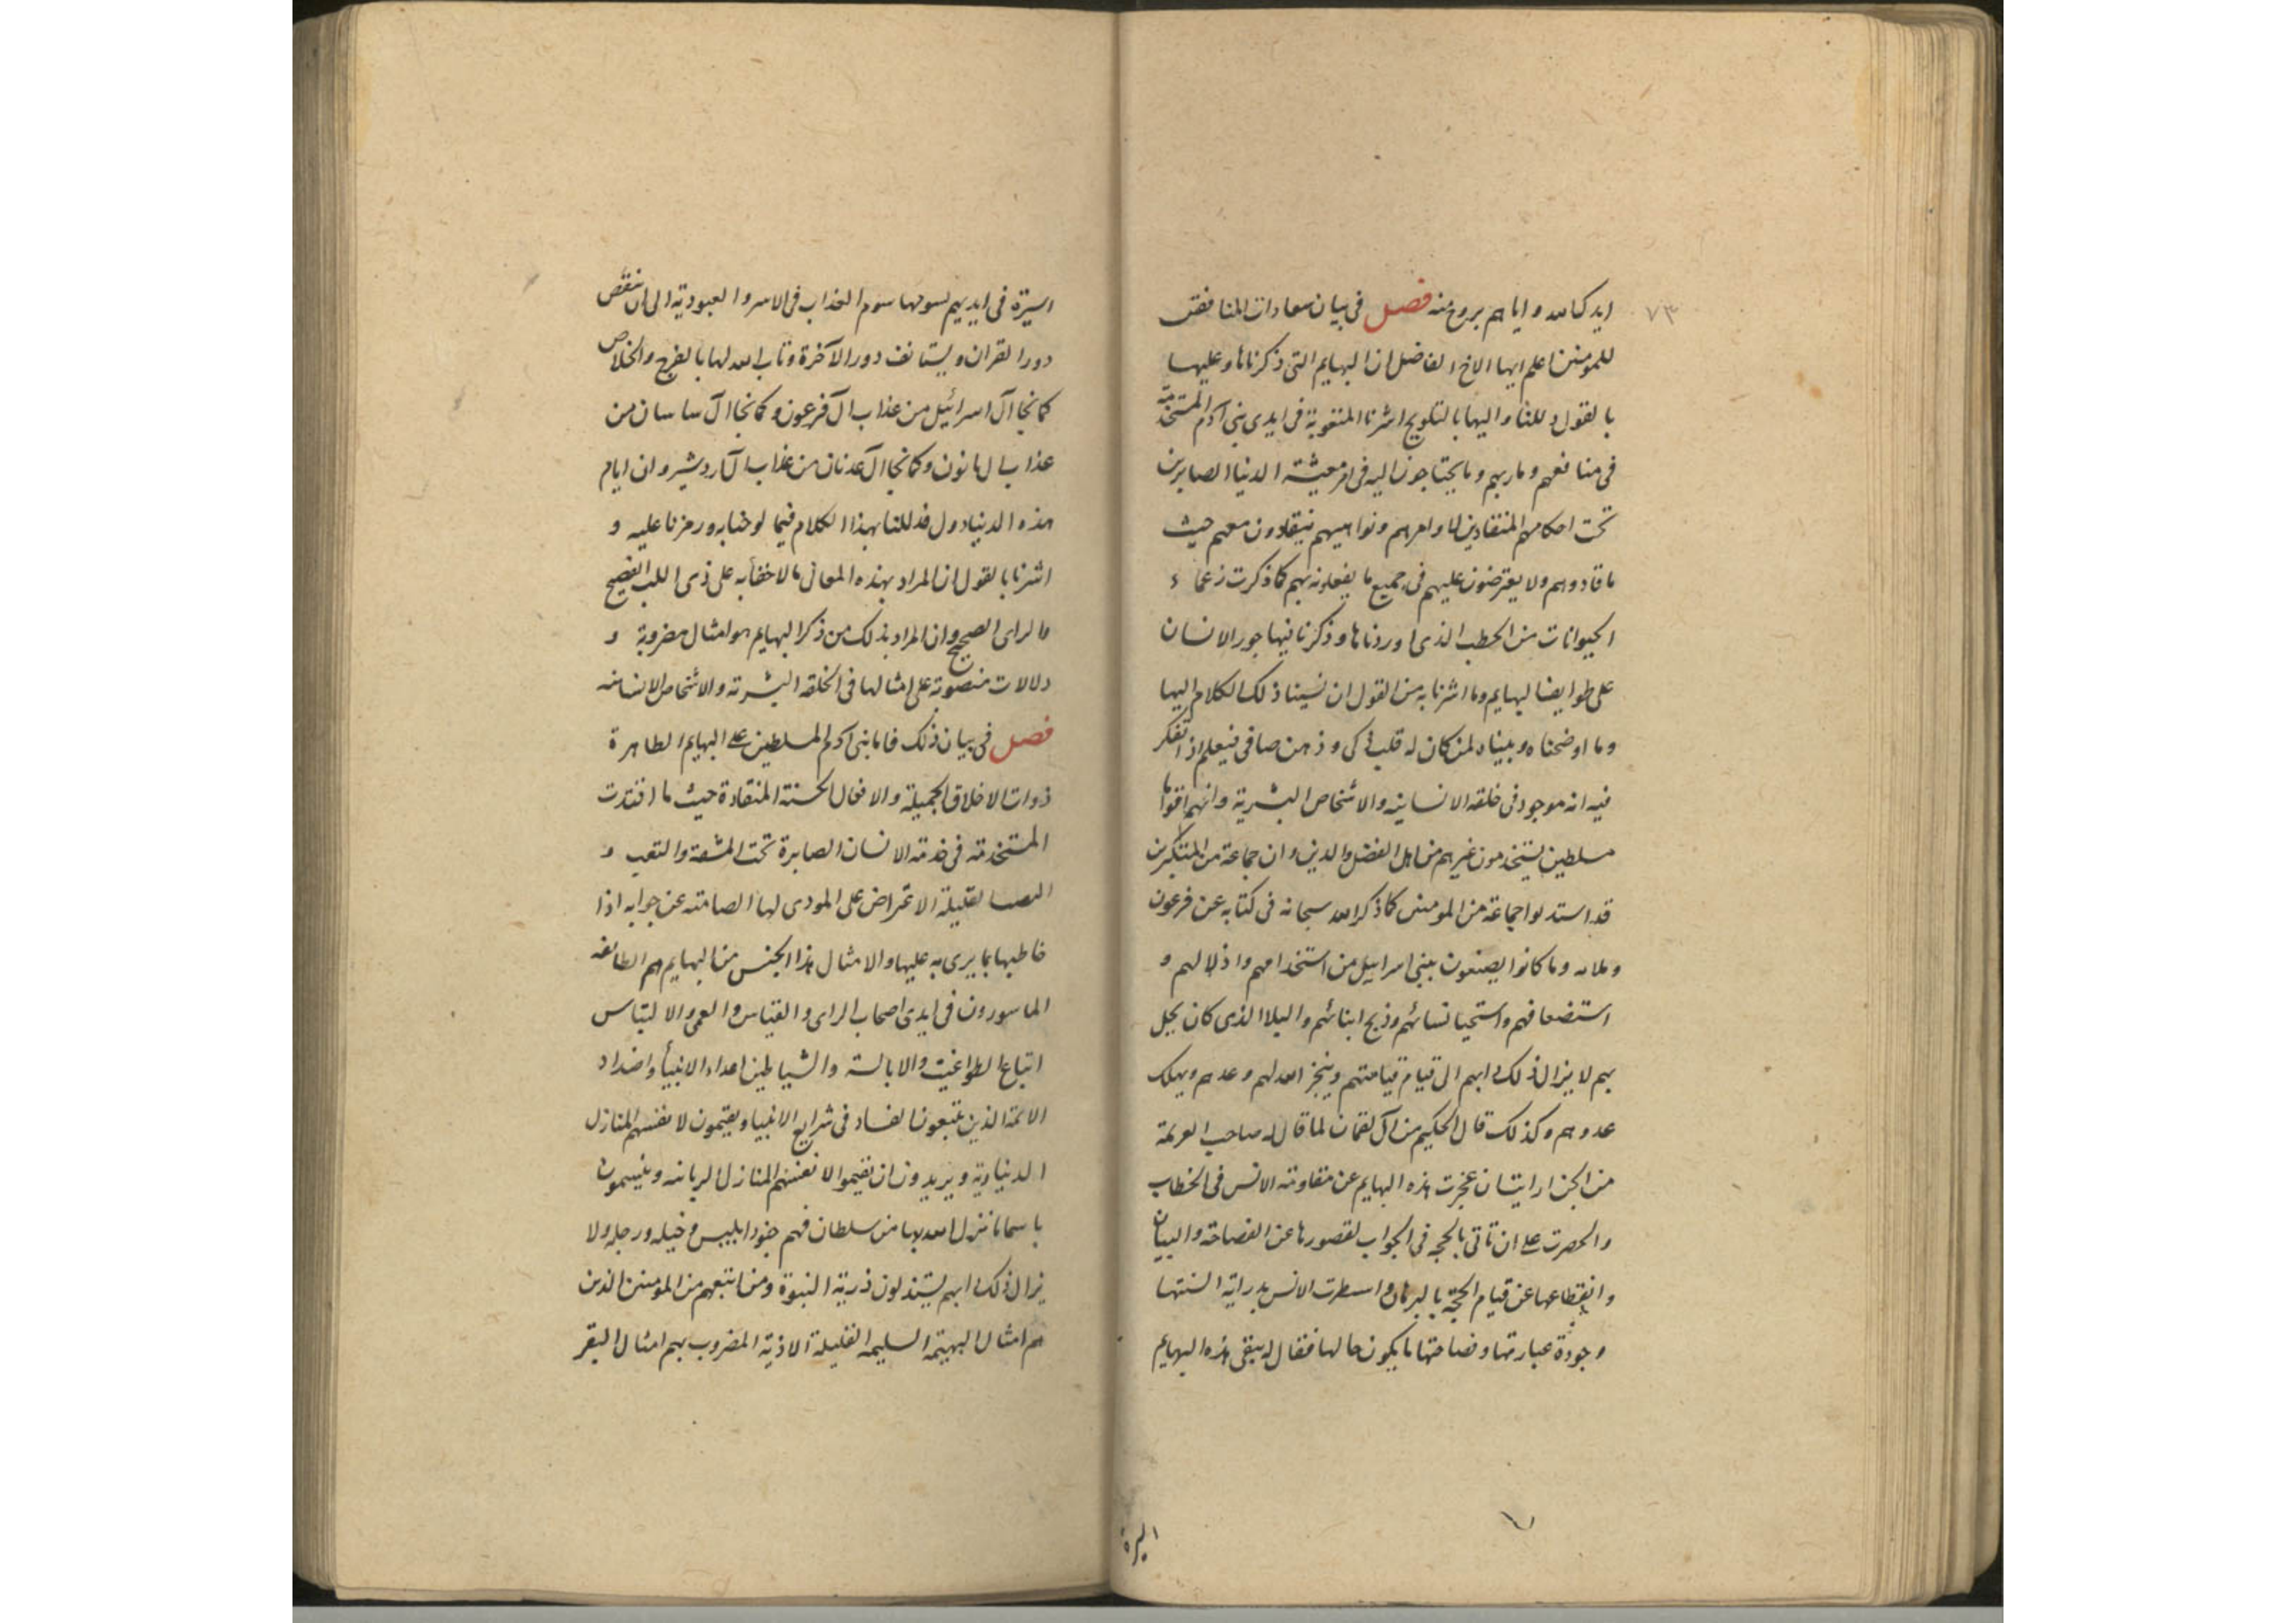 ٧٣
ايدك الله واياهم بروح منه فصل فى بيان معادات المنافقين
للمومنين اعلم ايها الاخ الفاضل ان البهايم التى ذكرناها وعليها
بالقول دللنا واليها بالتلويح اشرنا المتعوبة فى ايدى بنى آدم المستخدمة
فى منافعهم وماربهم وما يحتاجون اليه فى امر معيشة الدنيا الصابرين
تحت احكامهم المنقادين لاوامرهم ونواهيهم ينقادون معهم حيث
ما قادوهم ولا يعترضون عليهم فى جميع ما يفعلونه بهم كما ذكرت زعماء
الحيوانات من الخطب الذى اوردناها وذكرنا فيها جور الانسان
على طوايف البهايم وما اشرنا به من القول ان نسبنا ذلك الكلام اليها
وما اوضحناه وبيناه لمن كان له قلب ذكى وذهن صافى فيعلم اذا تفكر
فيه انه موجود فى خلقه الانسانيه والاشخاص البشرية وانهم اقواما
مسلطين يستخدمون غيرهم من اهل الفضل والدين وان جماعة من المتكبرين
قد استذلوا جماعة من المومنين كما ذكر الله سبحانه فى كتابه عن فرعون
وملائه وما كانوا يصنعون ببنى اسرايل من استخدامهم واذلالهم و
استضعافهم واستحيا نسائهم وذبح ابنائهم والبلا الذى كان يحل
بهم لا يزال ذلك دابهم الى قيام قيامتهم وينجز الله لهم وعدهم ويهلك
عدوهم وكذلك قال الحكيم من آل لقمان لما قال له صاحب العزيمة
من الجن ارايت ان عجزت هذه البهايم عن مقاومة الانس فى الخطاب
والحصرت على ان تاتى بالحجه فى الجواب لقصورها عن الفصاحة والبيان
وانقطاعها عن قيام الحجة بالبرهان واستظهرت الانس بدراية السنتها
وجودة عبارتها وفصاحتها ما يكون حالها فقال له يبقى هذه البهايم
اسيرة فى ايديهم يسومها سوم العذاب فى الاسر والعبودية الى ان ينقض
دور القران ويستانف دور الآخرة وتاب الله لها بالفرج والخلاص
كما نجا آل اسرائيل من عذاب آل فرعون وكما نجا آل ساسان من
عذاب ال هانون وكما نجا آل عدنان من عذاب آل اردشير وان ايام
هذه الدنيا دول فدللنا بهذا الكلام فيما لوحنا به ورمزنا عليه و
اشرنا بالقول ان المراد بهذه المعانى ما لا خفأ به على ذى اللب الفصيح
والراى الصحيح وان المراد بذلك من ذكر البهايم هو امثال مضروبة و
دلالات منصوبة على امثالها فى الخلقه البشرية والاشخاص الانسانيه
فصل فى بيان ذلك فاما بنى آدم المسلطين على البهايم الطاهرة
ذوات الاخلاق الجميلة والافعال الحسنة المنقادة حيث ما اقتدت
المستخدمة فى خدمة الانسان الصابرة تحت المشقة والتعب و
النصب القليلة الاعتراض على الموذى لها الصامته عن جوابه اذا
خاطبها بما يرى به عليها والامثال هذا الجنس من البهايم هم الطائفه
الماسورون فى ايدى اصحاب الراى والقياس والعمى والالتباس
اتباع الطواغيت والابالسة والشياطين اعداء الانبيأ واضداد
الائمة الذين يتبعون الفساد فى شرايع الانبيا ويقيمون لانفسهم المنازل
الدنياوية ويريدون ان يقيموا لانفسهم المنازل الربانيه ويتسمون
باسما ما نزل الله بها من سلطان فهم جنود ابليس وخيله ورجله ولا
يزال ذلك دابهم يستذلون ذرية النبوة ومن اتبعهم من المومنين الذين
هم امثال البهيمة السليمه القليلة الاذية المضروب بهم امثال البقر
اسيرة